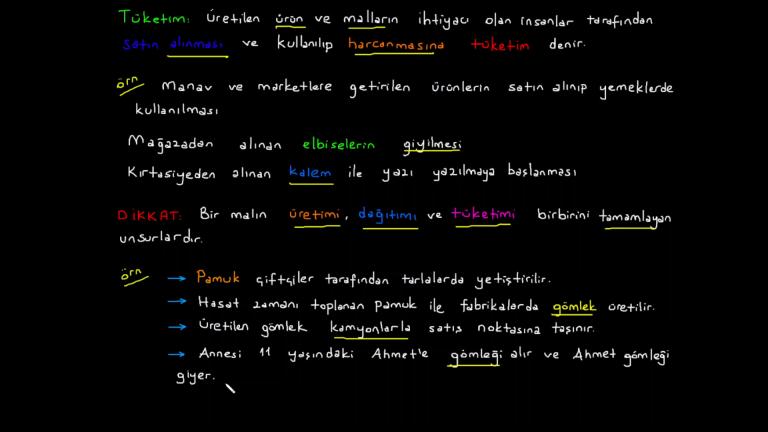 Tüketim: Üretilen ürün ve malların ihtiyacı olan insanlar tarafından
satın alınması ve kullanılıp harcanmasına tüketim denir.
örn Manav ve marketlere getirilen ürünlerin satın alınıp yemeklerde
kullanılması
Mağazadan alınan elbiselerin giyilmesi
Kırtasiyeden alınan kalem ile yazı yazılmaya başlanması
DİKKAT: Bir malın üretimi, dağıtımı ve tüketimi birbirini tamamlayan
unsurlardır.
örn → Pamuk çiftçiler tarafından tarlalarda yetiştirilir.
→ Hasat zamanı toplanan pamuk ile fabrikalarda gömlek üretilir.
→ Üretilen gömlek kamyonlarla satış noktasına taşınır.
→ Annesi 11 yaşındaki Ahmet'e gömleği alır ve Ahmet gömleği
giyer.